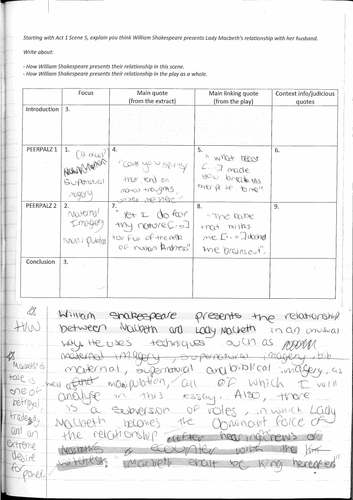 Starting with Act 1 Scene 5, explain you think William Shakespeare presents Lady Macbeth's relationship with her husband.
Write about:
- How William Shakespeare presents their relationship in this scene.
- How William Shakespeare presents their relationship in the play as a whole.
Focus
Main quote
(from the extract)
Main linking quote
(from the play)
Context info/judicious
quotes
Introduction
3.
PEERPALZ 1
1.
Supernatural
imagery
4.
"Come you spirits
that tend on
mortal thoughts,
unsex me here"
5.
"What beast
[...] made
you break this
enterprise to me"
6.
PEERPALZ 2
2.
Maternal
Imagery
Manipulation
7.
"Yet I do fear
thy nature [...]
too full of the milk
of human kindness"
8.
"The babe
that milks
me [...] dashed
the brains out".
9.
Conclusion
3.
H/W
William Shakespeare presents the relationship
between Macbeth and Lady Macbeth in an unusual
way. He uses techniques such as
maternal imagery, supernatural imagery, bib
maternal, supernatural and biblical imagery, as
well as manipulation, all of which I will
analyse in this essay. Also, there
is a subversion of roles, in which Lady
Macbeth becomes the dominant force of
the relationship after hearing news of
Macbeth's encounter with the
witches, "Macbeth shalt be King hereafter"
Macbeth's
tale is
one of
betrayal
tragedy
and an
extreme
desire
for power.